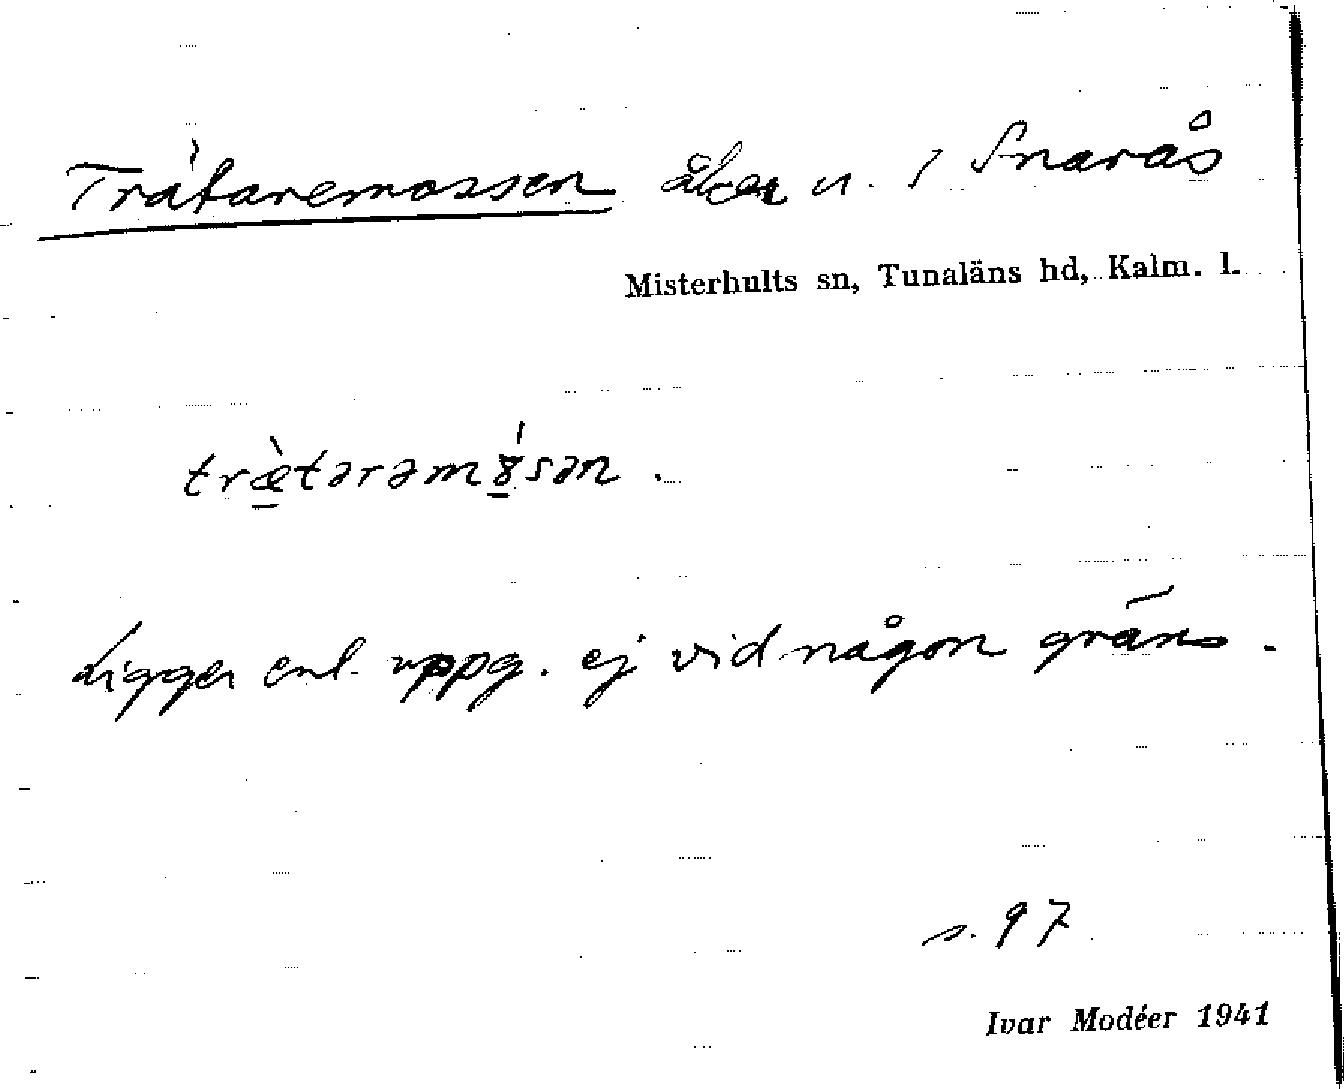 Trätaremossen åker n. 1 Snarås
Misterhults sn, Tunaläns hd, Kalm. l.
træ̀tərəmɣ́sən.
Ligger enl. uppg. ej vid någon gräns.
s. 97
Ivar Modéer 1941